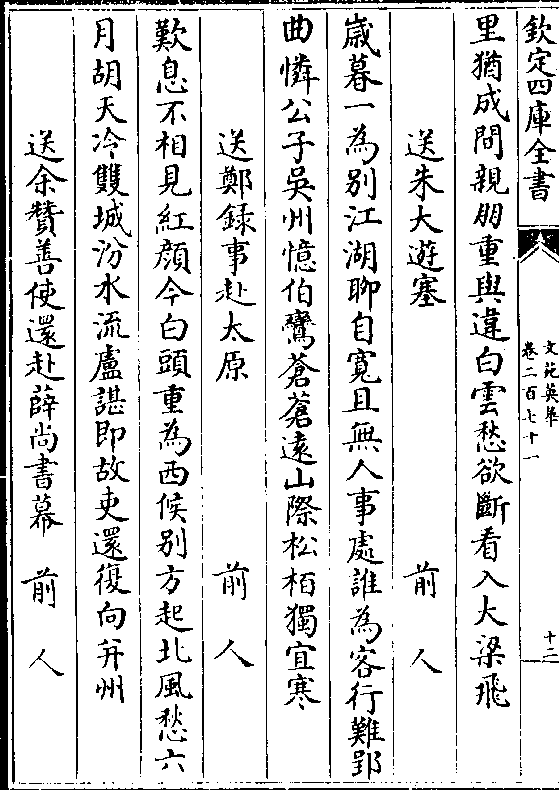 欽定四庫全書
文苑英華
卷二百七十一
十二
里猶成間親朋重與違白雲愁欲斷看入大梁飛
送朱大遊塞 前人
歲暮一為別江湖聊自寛且無人事處誰為客行難郢
曲憐公子吳州憶伯鸞蒼蒼遠山際松栢獨宜寒
送鄭録事赴太原 前人
歎息不相見紅顔今白頭重為西候别方起北風愁六
月胡天冷雙城汾水流盧諶即故吏還復向并州
送余贊善使還赴薛尚書幕 前人